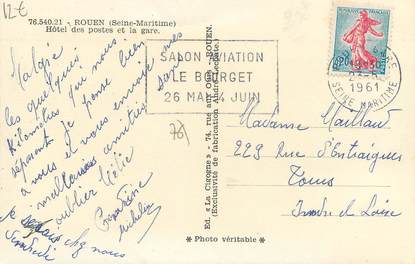 12€
76.540.21 - ROUEN (Seine-Maritime)
Hôtel des postes et la gare.
Malgré
les quelques
Kilomètres qui nous
séparent je pense bien
à vous et vous envoie mes
meilleures amitiés sans
oublier
chez nous
Vendredi
Ed. « La Cigogne » - 74, rue aux Ours - ROUEN.
(Exclusivité de fabrication André
* Photo véritable *
SALON AVIATION
LE BOURGET
26 MAI-4 JUIN
781
0,20
19 30
23-5
1961
SEINE MARITIME
Madame Maillaud
229 Rue d'Entraigues
Tours
Indre et Loire